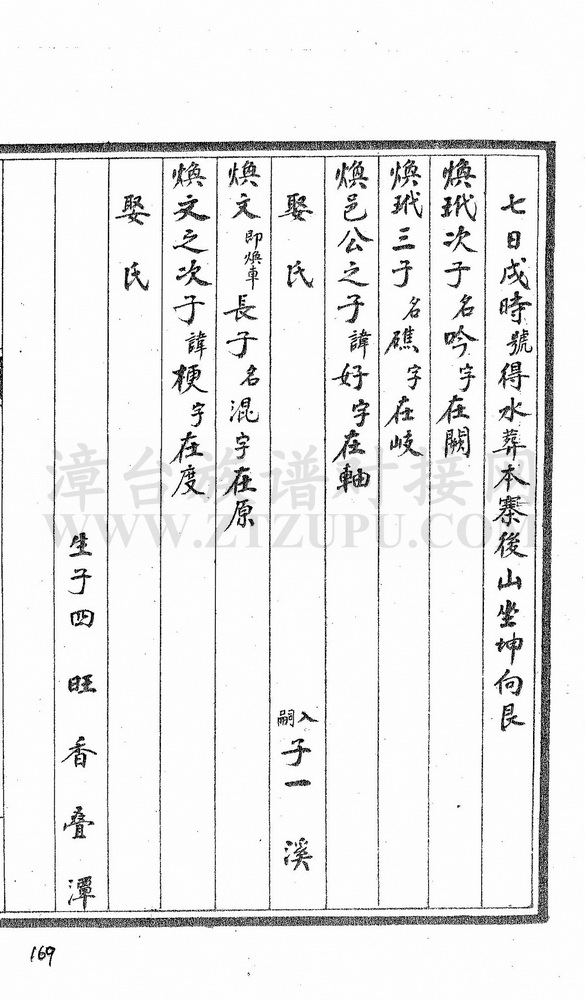 七日戌時號得水葬本寨後山坐坤向艮
煥玳次子名吟字在闕
煥玳三子名礁字在岐
煥邑公之子諱好字在軸
娶氏 入嗣子一 溪
煥文即煥車長子名混字在原
煥文之次子諱梗字在度
娶氏
生子四 旺 香 疊 潭
漳台族谱对接网
WWW.ZTZUPU.COM
169